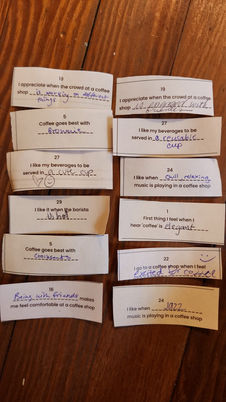 19
I appreciate when the crowd at a coffee
shop is working on different
things
5
Coffee goes best with
Brownie
27
I like my beverages to be
served in a cute cup
29
I like it when the barista
is hot
5
Coffee goes best with
croissants
16
Being with friends makes
me feel comfortable at a coffee shop
19
I appreciate when the crowd at a coffee
shop is with
27
I like my beverages to be
served in a reusable
cup
24
I like when chill relaxing
music is playing in a coffee shop
1
First thing I feel when I
hear 'coffee' is Elegant
22
I go to a coffee shop when I feel
excited or
24
I like when Jazz
music is playing in a coffee shop